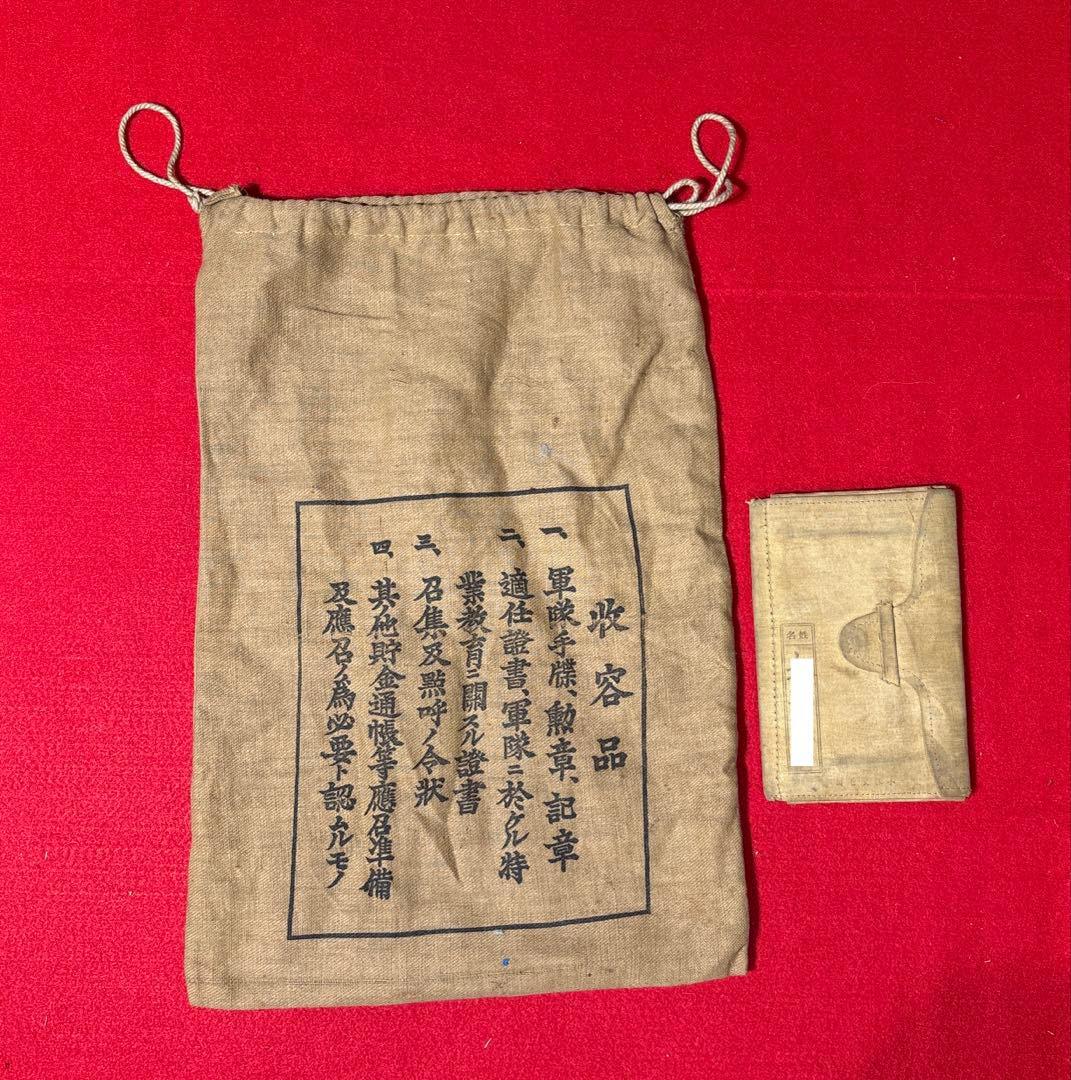 收容品
一、軍隊手牒、勲章、記章
二、適任證書、軍隊ニ於ケル特
業教育ニ關スル證書
三、召集及點呼ノ令狀
四、其ノ他貯金通帳等應召準備
及應召ノ爲必要ト認ムルモノ
姓名